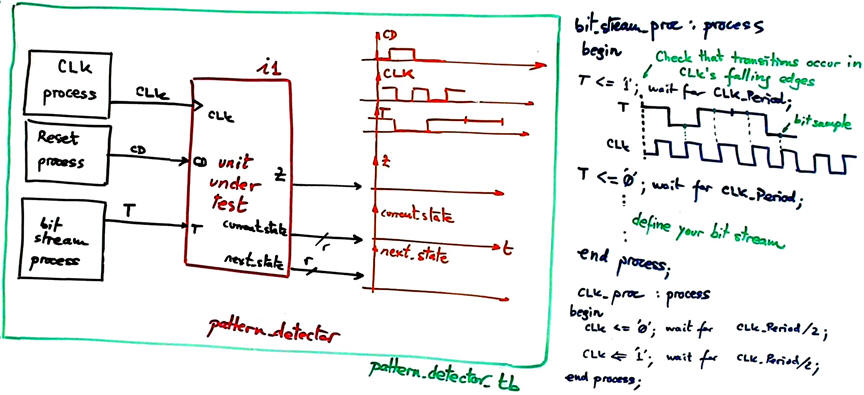 CLK
process
CLK
Reset
process
CD
bit
stream
process
T
i1
CLK
CD
unit
under
test
Z
T
current_state
r
next_state
r
pattern_detector
pattern_detector_tb
CD
CLK
T
Z
current_state
t
next_state
bit_stream_proc : process
begin
Check that transitions occur in
CLK's falling edges
T <= '1'; wait for CLK_Period;
T
bit sample
CLK
T <= '0'; wait for CLK_Period;
define your bit stream
end process;
CLK_proc : process
begin
CLK <= '0'; wait for CLK_Period/2;
CLK <= '1'; wait for CLK_Period/2;
end process;